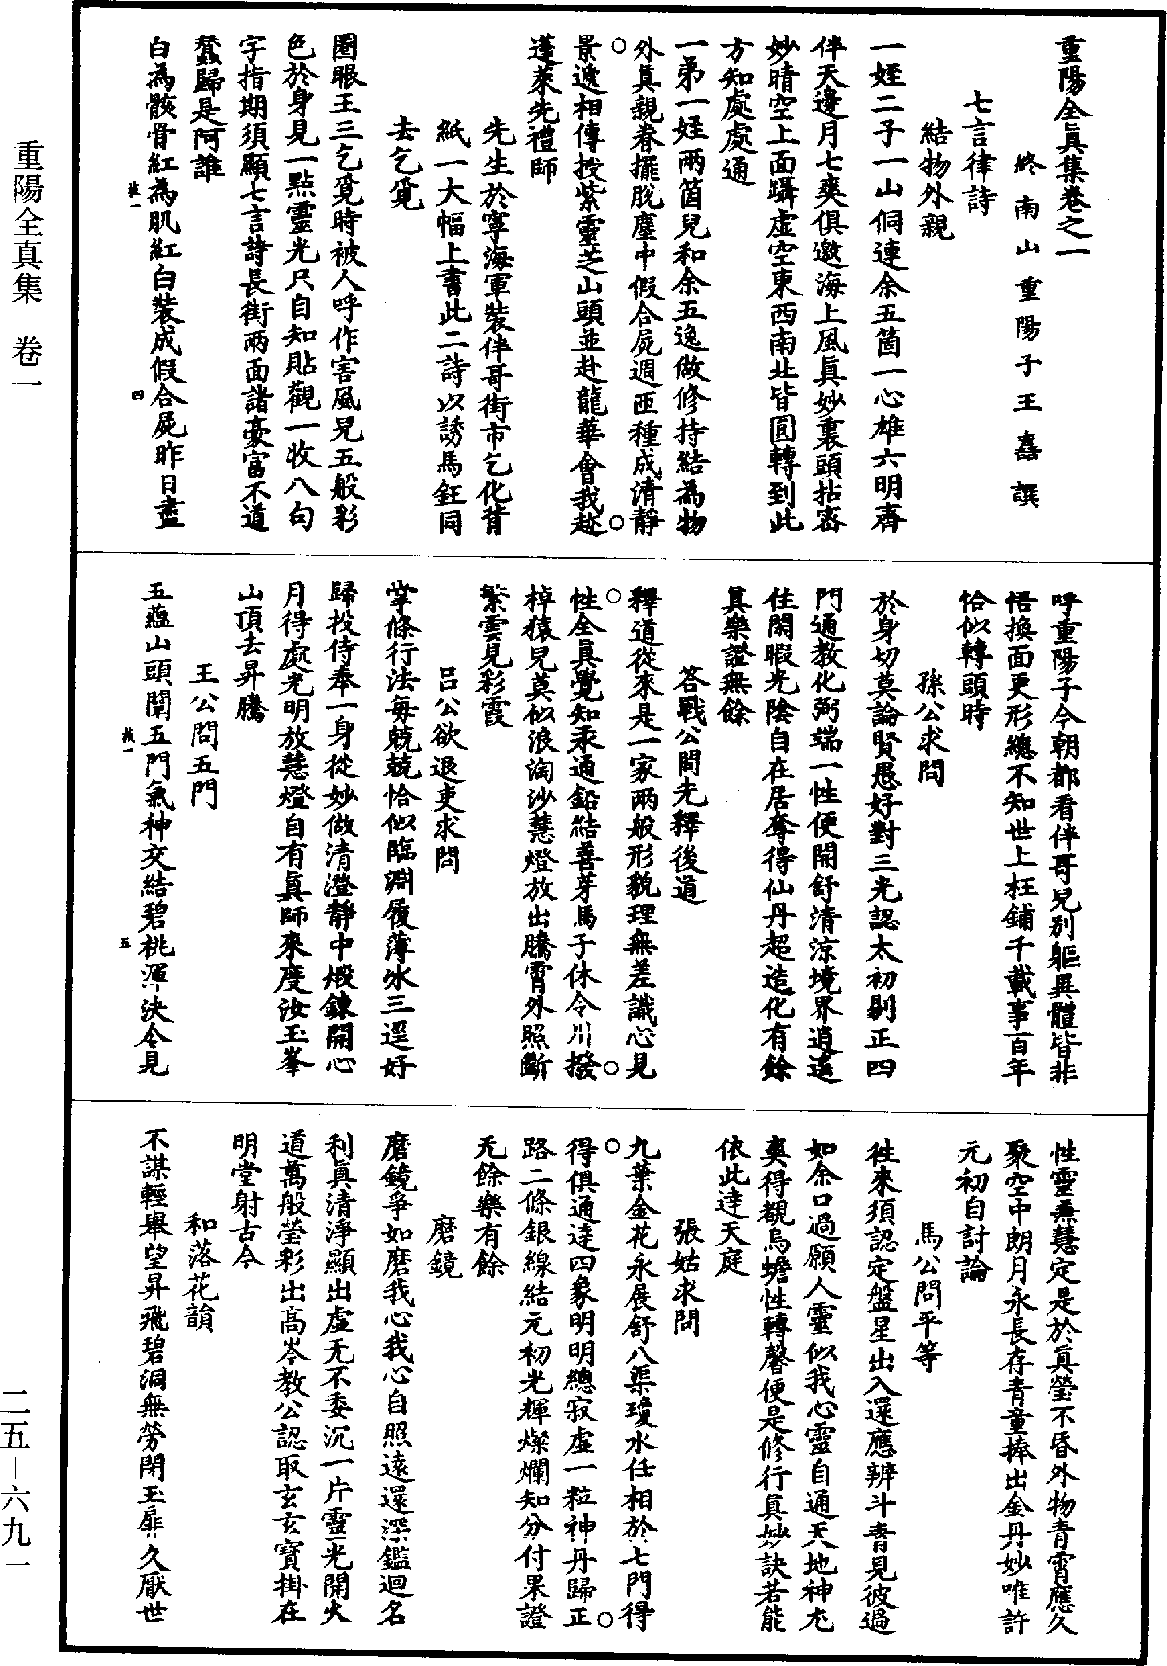 重陽全眞集卷之一
終南山重陽子王嚞譔
七言律詩
結物外親
一姪二子一山侗連余五箇一心雄六明齊
伴天邊月七爽俱邀海上風眞妙裏頭拈密
妙晴空上面躡虛空東西南北皆圓轉到此
方知處處通
一弟一姪兩箇兒和余五逸做修持結為物
外眞親眷擺脫塵中假合屍週匝種成清靜
景遞相傳授紫靈芝山頭並赴龍華會我趁
蓬萊先禮師
先生於寧海軍裝伴哥街市乞化背
紙一大幅上書此二詩以誘馬鈺同
去乞覓
圈眼王三乞覓時被人呼作害風兒五般彩
色於身見一點靈光只自知貼觀一收八句
字指期須顯七言詩長街兩面諸豪富不道
蠶歸是阿誰
白為骸骨紅為肌紅白裝成假合屍昨日盡
呼重陽子今朝都看伴哥兒別軀異體皆非
悟換面更形總不知世上枉鋪千載事百年
恰似轉頭時
孫公求問
於身切莫論賢愚好對三光認太初剔正四
門通教化弼端一性便開舒清涼境界逍遙
住閑暇光陰自在居奪得仙丹超造化有餘
眞樂證無餘
答戰公問先釋後道
釋道從來是一家兩般形貌理無差識心見
性全眞覺知汞通鉛結善芽馬子休令川撥
棹猿兒莫似浪淘沙慧燈放出騰霄外照斷
繁雲見彩霞
呂公欲退吏求問
掌條行法每兢兢恰似臨淵履薄冰三逕好
歸投侍奉一身從妙做清澄靜中煅鍊開心
月得處光明放慧燈自有眞師來度汝玉峯
山頂去昇騰
王公問五門
五蘊山頭闡五門氣神交結碧桃渾決令見
性靈兼慧定是於眞瑩不昏外物青霄應久
聚空中朗月永長存青童捧出金丹妙唯許
元初自討論
馬公問平等
徃來須認定盤星出入還應辨斗青見彼過
如余口過願人靈似我心靈自通天地神尢
爽得覩烏蟾性轉馨便是修行眞妙訣若能
依此達天庭
張姑求問
九葉金花永展舒八渠瓊水任相於七門得
得俱通達四象明明總寂虛一粒神丹歸正
路二條銀線結元初光輝燦爛知分付果證
无餘樂有餘
磨鏡
磨鏡爭如磨我心我心自照遠還深鑑迴名
利眞清淨顯出虛无不委沉一片靈光開大
道萬般瑩彩出高岑教公認取玄玄寶掛在
明堂射古今
和落花韻
不謀輕舉望昇飛碧洞無勞閉玉扉久厭世
重陽全真集 卷一
二五－六九一